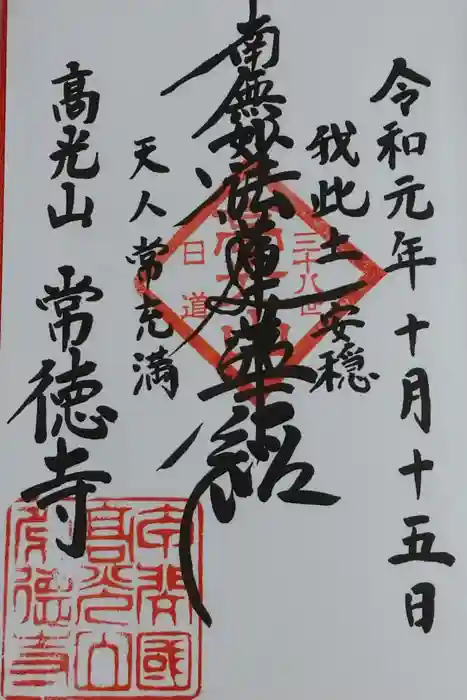 令和元年十月十五日
我此土安穏
南無妙法蓮華経
天人常充満
高光山 常徳寺
三十八世
日道
高光山
常徳寺